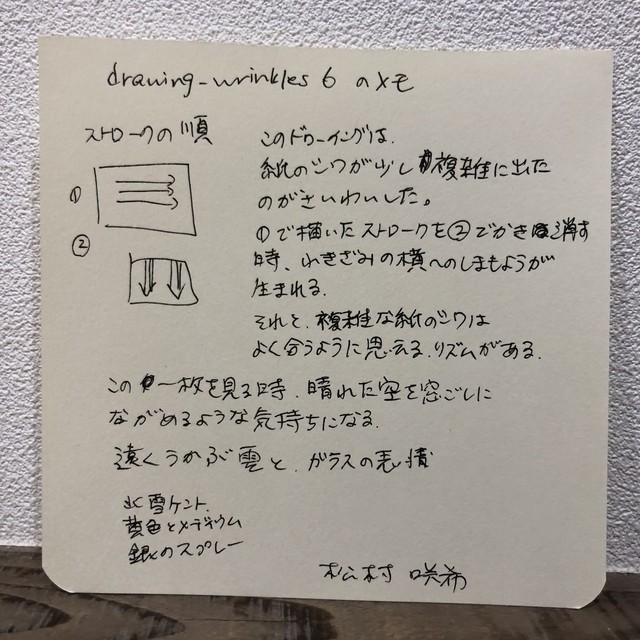 drawing-wrinkles 6 のメモ
ストロークの順
①
②
このドローイングは、
紙のシワが少し複雑に出た
のがさいわいした。
①で描いたストロークを②でかき消す
時、小きざみの横へのしまもようが
生まれる.
それと、複雑な紙のシワは
よく合うように思える.リズムがある.
この一枚を見る時、晴れた空を窓ごしに
ながめるような気持ちになる.
遠くうかぶ雲と、ガラスの表情
氷雪ケント.
黄色とメディウム
銀のスプレー
松村 咲希